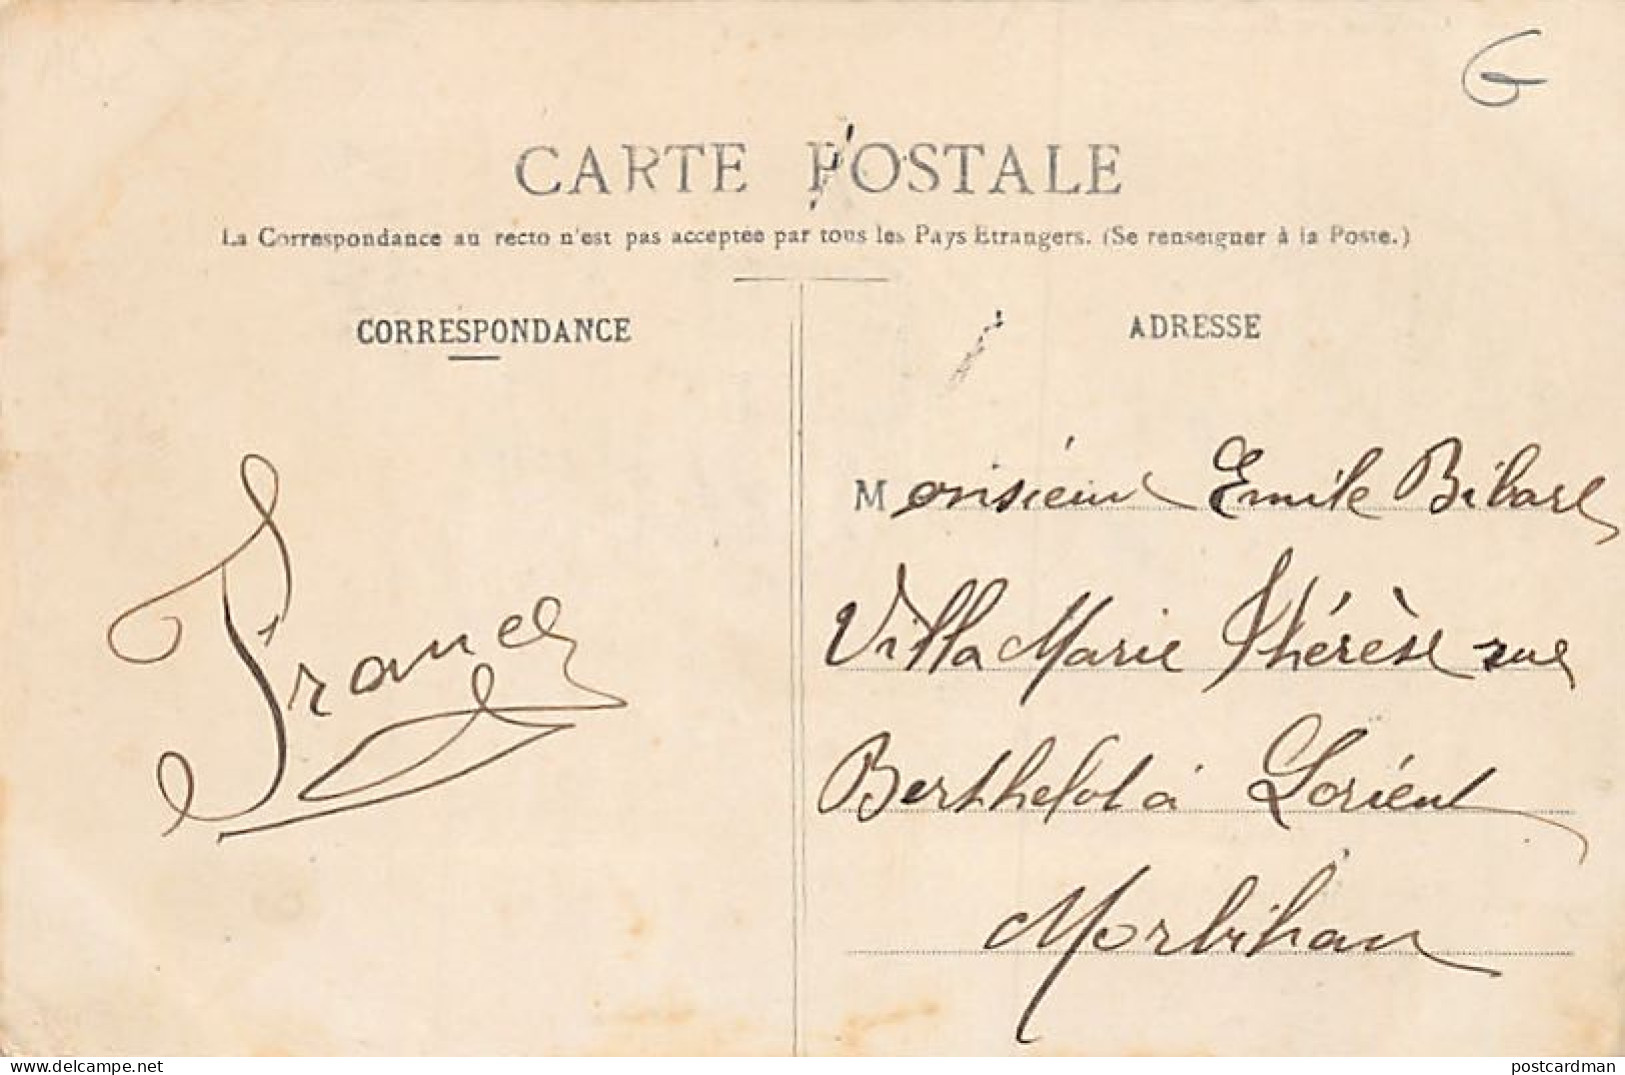 CARTE POSTALE
La Correspondance au recto n'est pas acceptée par tous les Pays Etrangers. (Se renseigner à la Poste.)
CORRESPONDANCE
ADRESSE
Monsieur Emile
Villa Marie Thérèse rue
Berthelot à Lorient
Morbihan
www.delcampe.net
postcardman